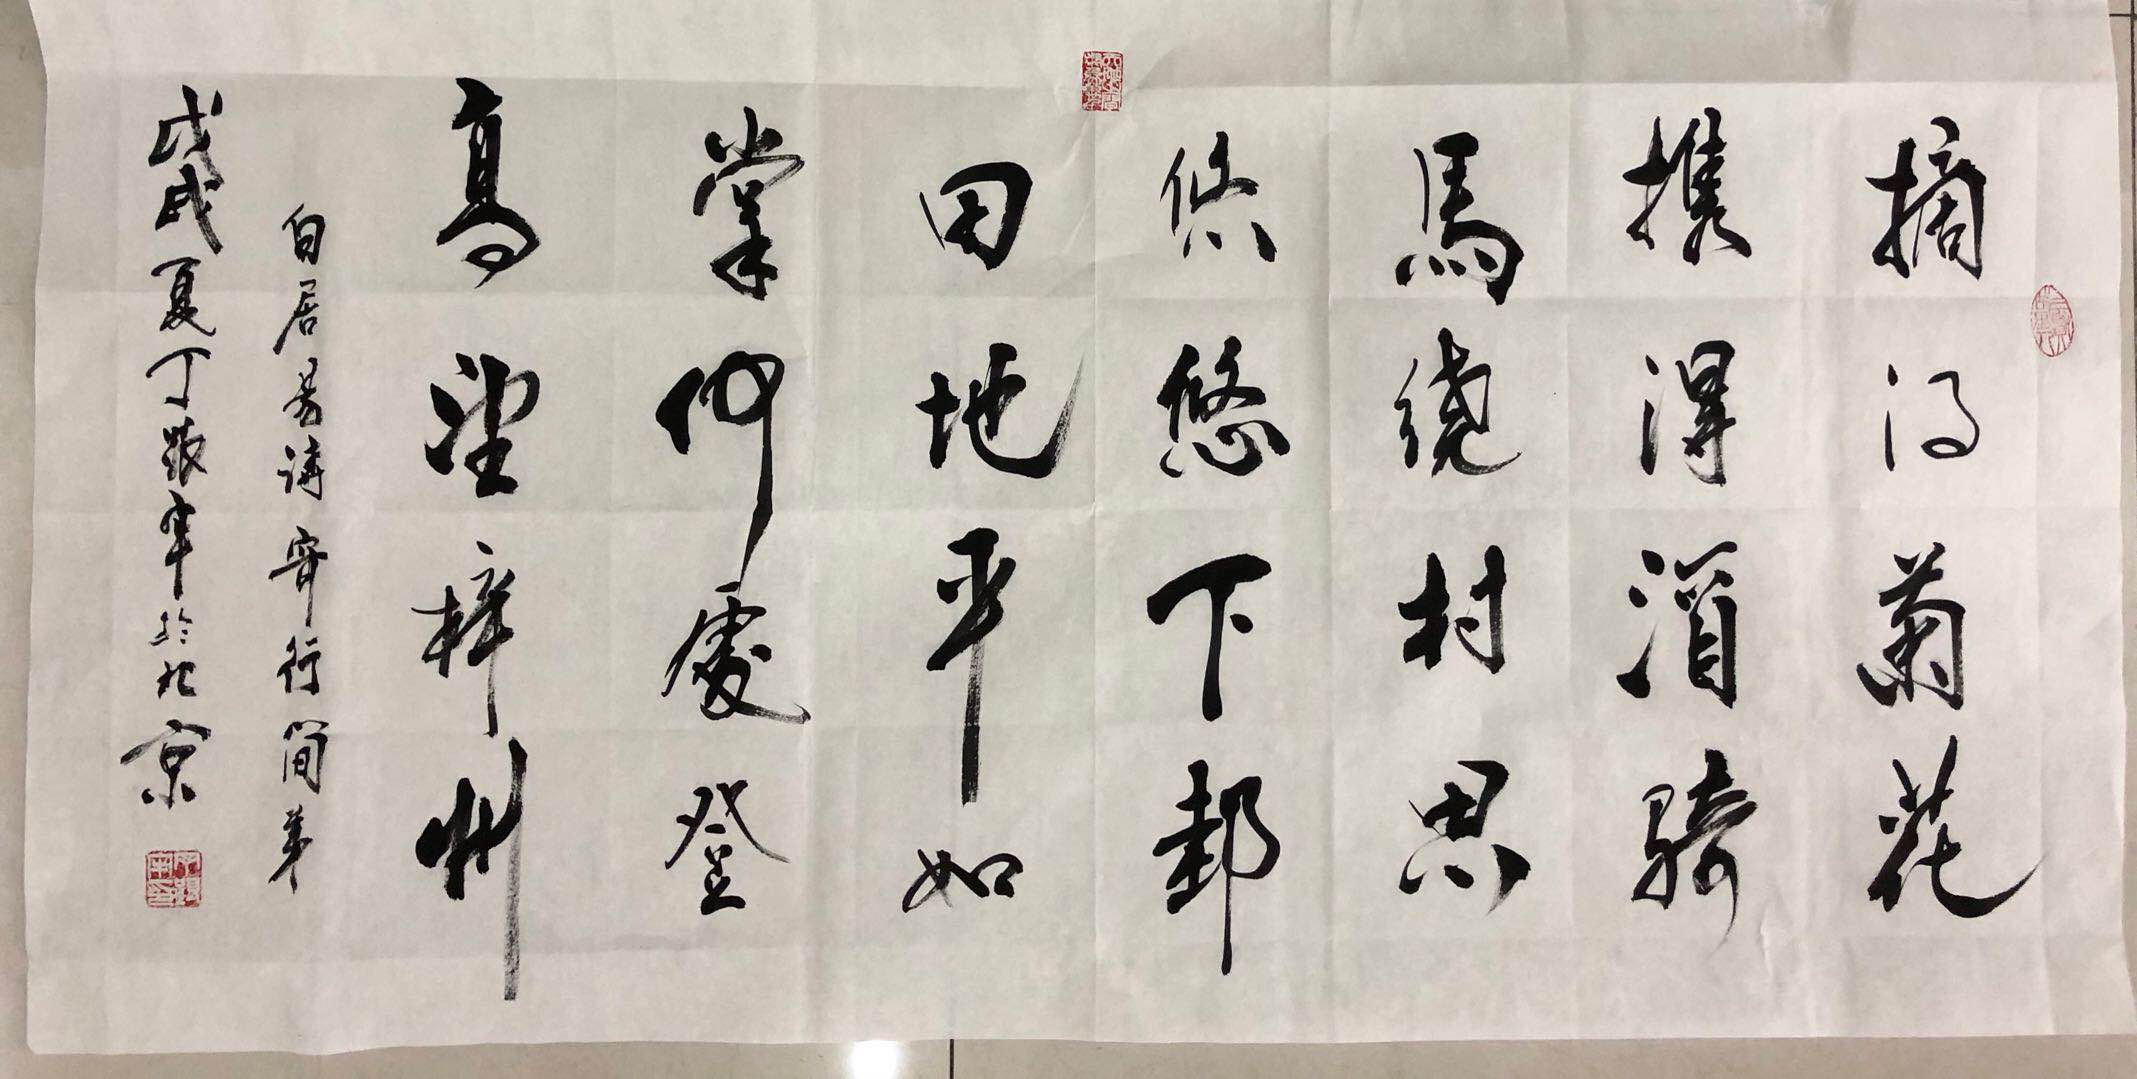 摘得菊花
携得酒騎
馬繞村思
悠悠下邽
田地平如
掌何處登
高望梓州
白居易詩寄行簡弟
戊戌夏丁於北京